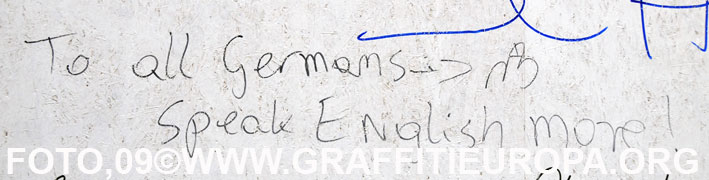 To all Germans->
Speak ENglish more!
FOTO,09©WWW.GRAFFITIEUROPA.ORG